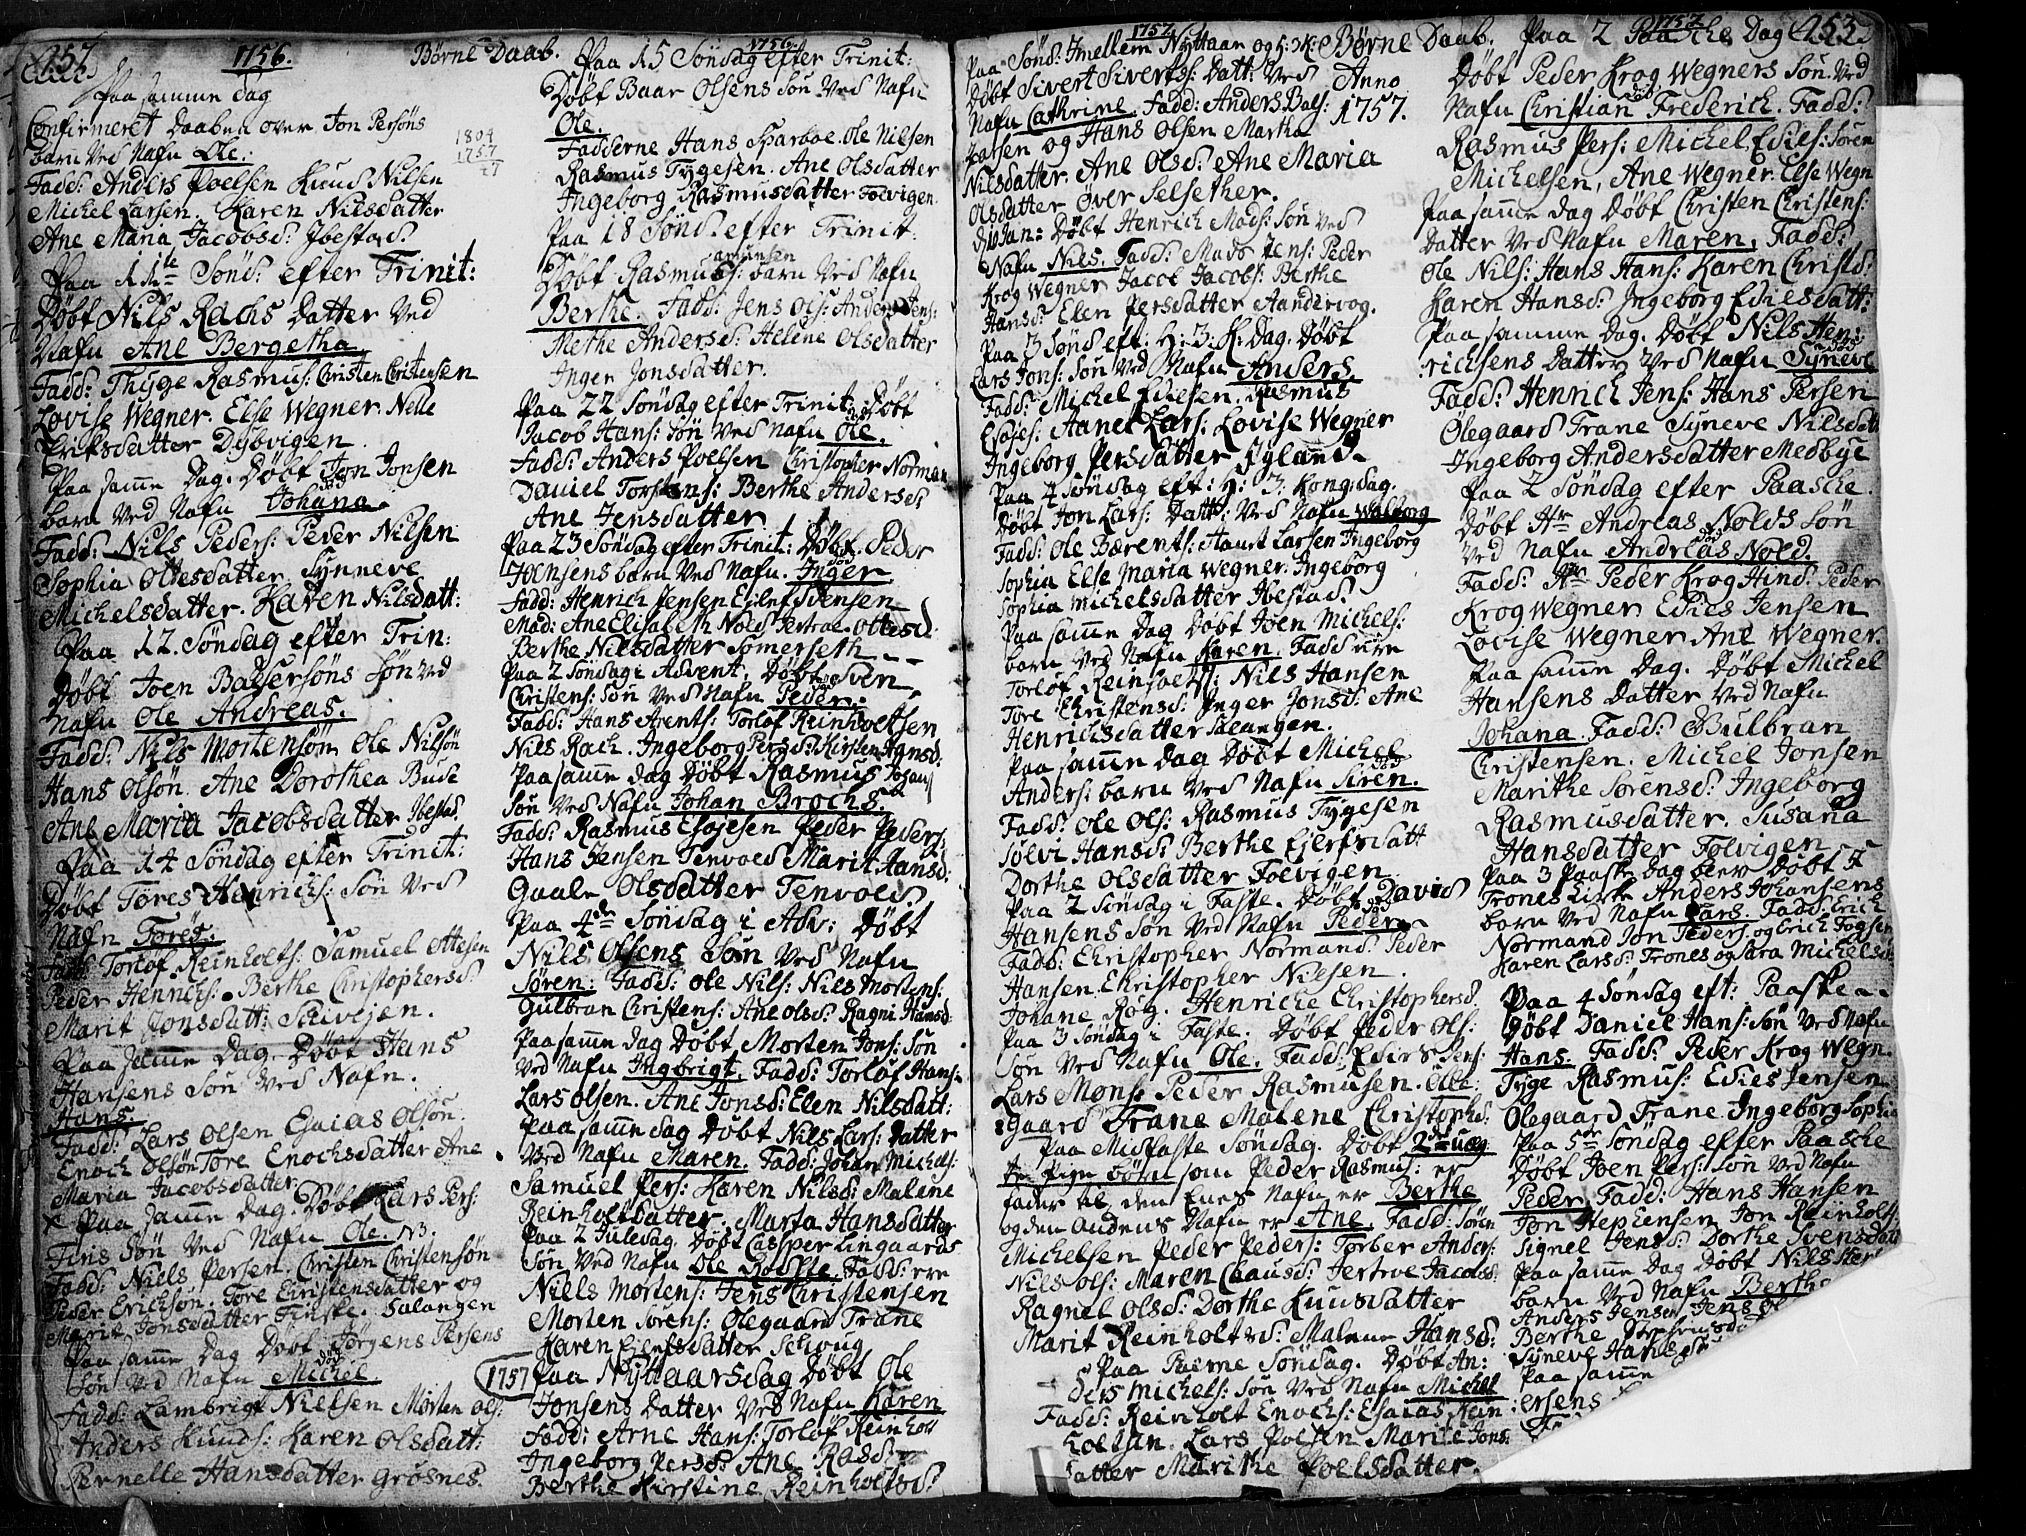 1756.
Børne Daab.
Paa samme Dag
Confirmeret Daaben over Jon Persøns
barn Ved Nafn Ole.
Fadd: Anders Poelsen Knud Nilsen
Michel Larsen. Karen Nilsdatter
Ane Maria Jacobsd: Ibestad.
Paa 11te Sønd: efter Trinit:
Døbt Nils Rachs Datter Ved
Nafn Ane Bergetha
Fadd: Thyge Rasmus: Christen Christensen
Lovise Wegner. Else Wegner. Nelle
Eriksdatter Dybvigen.
Paa samme Dag. Døbt Jon Jonsen
barn Ved Nafn Johana.
Fadd: Nils Peders: Peder Nilsen
Sophia Ottesdatter Synneve
Michelsdatter. Karen Nilsdatt:
Paa 12. Søndag efter Trin:
Døbt Joen Balsersøns Søn ved
Nafn Ole Andreas.
Fadd: Nils Mortensøn Ole Nilsøn
Hans Olsøn. Ane Dorothea Bude
Ane Maria Jacobsdatter Ibestad.
Paa 14 Søndag efter Trinit:
Døbt Tøres Henrichs: Søn Ved
Nafn Tøres.
Fadd: Torlof Reinholts: Samuel Ottesen
Peder Henrichs: Berthe Christophersd:
Marit Jonsdatt:
Paa samme Dag. Døbt Hans
Hansens Søn Ved Nafn.
Hans.
Fadd: Lars Olsen Esaias Olsøn.
Enoch Olsøn Tore Enochsdatter Ane
Maria Jacobsdatter
x Paa samme Dag. Døbt Lars Pers:
Fins Søn Ved Nafn Ole. N3.
Fadd: Niels Persen. Christen Christensøn
Peder Erichsøn. Tore Christensdatter og
Marit Jonsdatter Finske. Salangen
Paa samme Dag Døbt Jørgens Persens
død
Søn Ved Nafn Michel
Fadd: Lambrigt Nielsen Morten Ols:
Anders Knuds: Karen Olsdatt:
Pernelle Hansdatter Grøsnes.
1804
1757
47
1756.
Paa 15 Søndag efter Trinit:
Døbt Baar Olsens Søn Ved Nafn
Ole.
Fadderne Hans Sparboe. Ole Nilsen
Rasmus Tygesen. Ane Olsdatter
Ingeborg Rasmusdatter Foevigen.
Paa 18 Sønd: efter Trinit:
Døbt Rasmus barn Ved Nafn
Berthe. Fadd: Jens Ols: Anders Jens:
Methe Andersd: Helene Olsdatter
Inger Jonsdatter.
Paa 22 Søndag efter Trinit: Døbt
Jacob Hans: Søn Ved Nafn Ole.
Fadd: Anders Poelsen Christopher Norman
Daniel Torstens: Berthe Andersd:
Ane Jensdatter
Paa 23 Søndag efter Trinit: Døbt. Peder
død
Joensens barn Ved Nafn. Inger
Fadd: Henrich Jensen Ejlef Svensen
Mad: Ane Elisabeth Nold Pertrae Ottesd:
Berthe Nilsdatter Somerseth
Paa 2 Søndag i Advent. Døbt Sven
Christens: Søn Ved Nafn Peder
Fadd: Hans Arents: Torlof Reinholtsen
Nils Rach. Ingeborg Persd: Kirsten Hansd:
Paa samme dag Døbt Rasmus Johans
Søn Ved Nafn Johan Brochs.
Fadd: Rasmus Esajesen Peder Peders:
Hans Jensen Tenvoed Marit Hansd:
Guale Olsdatter Tenvoed.
Paa 4de Søndag i Adv: Døbt
Nils Olsens Søn Ved Nafn
Søren: Fadd: Ole Nils: Nils Mortens:
Gulbran Christens: Ane Olsd: Ragni Hansd:
Paa samme dag Døbt Morten Jons: Søn
Ved Nafn Ingbrigt. Fadd: Torlof Hans:
Lars Olsen. Ane Jonsd: Elen Nilsdatt:
Paa samme dag Døbt Nils Lars: Datter
Ved Nafn Maren. Fadd: Johan Michels:
Samuel Pers: Karen Nilsd: Malene
Reinholtsdatter. Marta Hansdatter
Paa 2 Juledag. Døbt Casper Lingaards
Søn Ved Nafn Ole Rodhe. Fadd: ere
Niels Mortens: Jens Christensen
Morten Sørens: Olegaard Trane
Karen Ejlefsdatter Schoug
1757
Paa Nyttaarsdag Døbt Ole
Jonsens Datter Ved Nafn Karen
Fadd: Arne Hans: Torlof Reinholt
Ingeborg Persd: Ane Rasd:
Berthe Kirstine Reinholtsd:
1757
Børne Daab.
Anno
1757.
Paa Sønd: Imellem Nyttaar og H: 3 K:
Døbt Sivert Siverts: Datt: Ved
Nafn Cathrine. Fadd: Anders Bals:
Larsen og Hans Olsen Martha
Nilsdatter. Ane Olsd: Ane Maria
Olsdatter Øver Selsether.
D 10 Jan: Døbt Henrich Mads: Søn Ved
Nafn Nils. Fadd: Mads Jens: Peder
Krog Wegner Jacob Jacobs: Berthe
Hansd: Elen Persdatter Aandervog.
Paa 3 Sønd eft: H: 3: K: Dag. Døbt
Lars Jons: Søn Ved Nafn Anders
Fadd: Michel Ediesen. Rasmus
Esajes: Aanet Lars: Lovise Wegner
Ingeborg Persdatter Øyland.
Paa 4 Søndag eft: H: 3. Kong: dag.
Døbt Jon Lars: Datt: Ved Nafn Walborg
Fadd: Ole Bærents: Hans Larsen Ingeborg
Sophia Else Maria Wegner. Ingeborg
Sophia Michelsdatter Ibestad.
Paa samme Dag Døbt Joen Michels:
barn Ved Nafn Karen. Fadd ere
Torlof Reinholts: Nils Hansen
Tore Christensd: Inger Jonsd: Ane
Henrichsdatter Salangen.
Paa samme Dag Døbt Michel
død
Anders: barn Ved Nafn Siren.
Fadd: Ole Ols: Rasmus Tygesen
Sølvi Hansd: Berthe Ejlefsdatt
Dorthe Olsdatter Foevigen.
Paa 2 Søndag i Faste. Døbt David
død
Hansens Søn Ved Nafn Peder
Fadd: Christopher Normand: Peder
Hansen. Christopher Nilsen.
Johane Røg. Henriche Christophersd.
Paa 3 Søndag i Faste. Døbt Peder Ols:
Søn Ved Nafn Ole. Fadd: Edies Jens:
Lars Møns: Peder Rasmusen. Ole:
gaard Trane Malene Christophd:
Paa Midfaste Søndag. Døbt 2de uæg
te Pige børn som Peder Rasmus: er
fader til den Enes Nafn er Berthe
og den Andens Nafn er Ane. Fadd: Søren
Michelsen Peder Peders: Torber Anders:
Nils Ols: Maren Clausd: Jertrve Jacobsd:
Ragnel Olsd: Dorthe Knudsdatter
Marit Reinholtsd: Malene Hansd:
Paa Palme Søndag. Døbt An:
ders Michels: Søn Ved Nafn Michel
Fadd: Reinholt Enochs: Esaias Rein:
holtsen. Lars Poelsen Marite Jons:
datter Marithe Poelsdatter.
1757
253
Paa 2 Paasche Dag
Døbt Peder Krog Wegners Søn Ved
død
Nafn Christian Frederich. Fadd:
Rasmus Pers: Michel Edies: Søren
Michelsen, Ane Wegner. Else Wegn
Paa samme dag Døbt Christen Christens:
Datter Ved Nafn Maren, Fadd:
Ole Nils: Hans Hans: Karen Christd:
Karen Hansd: Ingeborg Ediesdatt:
Paa samme Dag. Døbt Nils Hen:
død
richsens Datter Ved Nafn Syneve
Fadd: Henrich Jens: Hans Persen
Olegaard Trane Syneve Nilsdatt
Ingeborg Andersdatter Medbye
Paa 2 Søndag efter Paasche.
Døbt Hr Andreas Nolds Søn
død
Ved Nafn Andreas Nold.
Fadd: Hr Peder Krog Hind: Peder
Krog Wegner Edies Jensen
Lovise Wegner Ane Wegner.
Paa samme Dag. Døbt Michel
Hansens Datter Ved Nafn
Johana. Fadd: Gulbran
Christensen. Michel Jonsen
Marithe Sørensd: Ingeborg
Rasmusdatter. Susana
Hansdatter Foevigen
Paa 3 Paaske Dag blev Døbt i
Trones Kirke Anders Johansens
barn Ved Nafn Lars. Fadd: Erich
Normand Jon Peders: og Erich Fogsen
Karen Larsd: Trones og Sara Michelsd:
Paa 4 Søndag eft: Paaske
Døbt Daniel Hans: Søn Ved Nafn
Hans. Fadd: Peder Krog Wegn.
Tyge Rasmus: Edies Jensen
Olegaard Trane. Ingeborg Sophia
Paa 5te Søndag efter Paasche
Døbt Joen Pers: Søn Ved Nafn
Peder. Fadd: Hans Hansen
Jon Stephensen Jon Reinholts
Signel Jensd: Dorthe Svensdatt
Paa samme Dag Døbt Nils
barn Ved Nafn Berthe
Anders Jensen Jens Ol
Berthe
Syneve Hansd
Paa samme
ersens